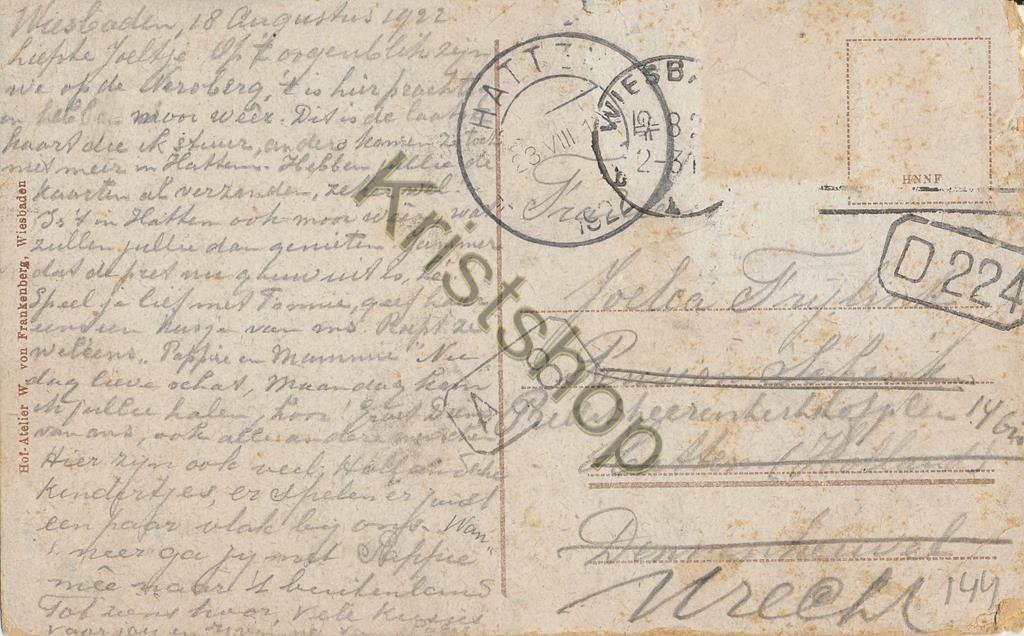 Wiesbaden, 18 Augustus 1922
Liefste Joeltje. Op 't oogenblik zijn
we op de Neroberg, 't is hier prachtig
en hebben mooi weêr. Dit is de laatste
kaart die ik stuur, anders komen ze toch
niet meer in Hattem. Hebben jullie de
kaarten al verzonden,
Is 't in Hattem ook mooi weêr, wat
zullen jullie dan genieten. Jammer
dat de pret nu gauw uit is, hé.
Speel je lief met Tonnie, geef haar
eens een kusje van ons. Roept ze
weleens „Pappie en Mammie". Nu
dag lieve schat, Maandag kom
ik jullie halen, hoor! Groet
van ons, ook alle andere menschen
Hier zijn ook veel Hollandsche
kindertjes, er spelen er juist
een paar vlak bij ons. Wan"
neer ga jij met Pappie
mêe naar 't buitenland
Tot ziens hoor, vele kusjes
voor jou en
Hof-Atelier W. von Frankenberg, Wiesbaden
HATTEM
23 VIII
1922
WIESB
8
2-3
HNNF
D 224
Joelca
Pension Schenk
14
Hattem (Holland)
Utrecht
144
A
Kristshop